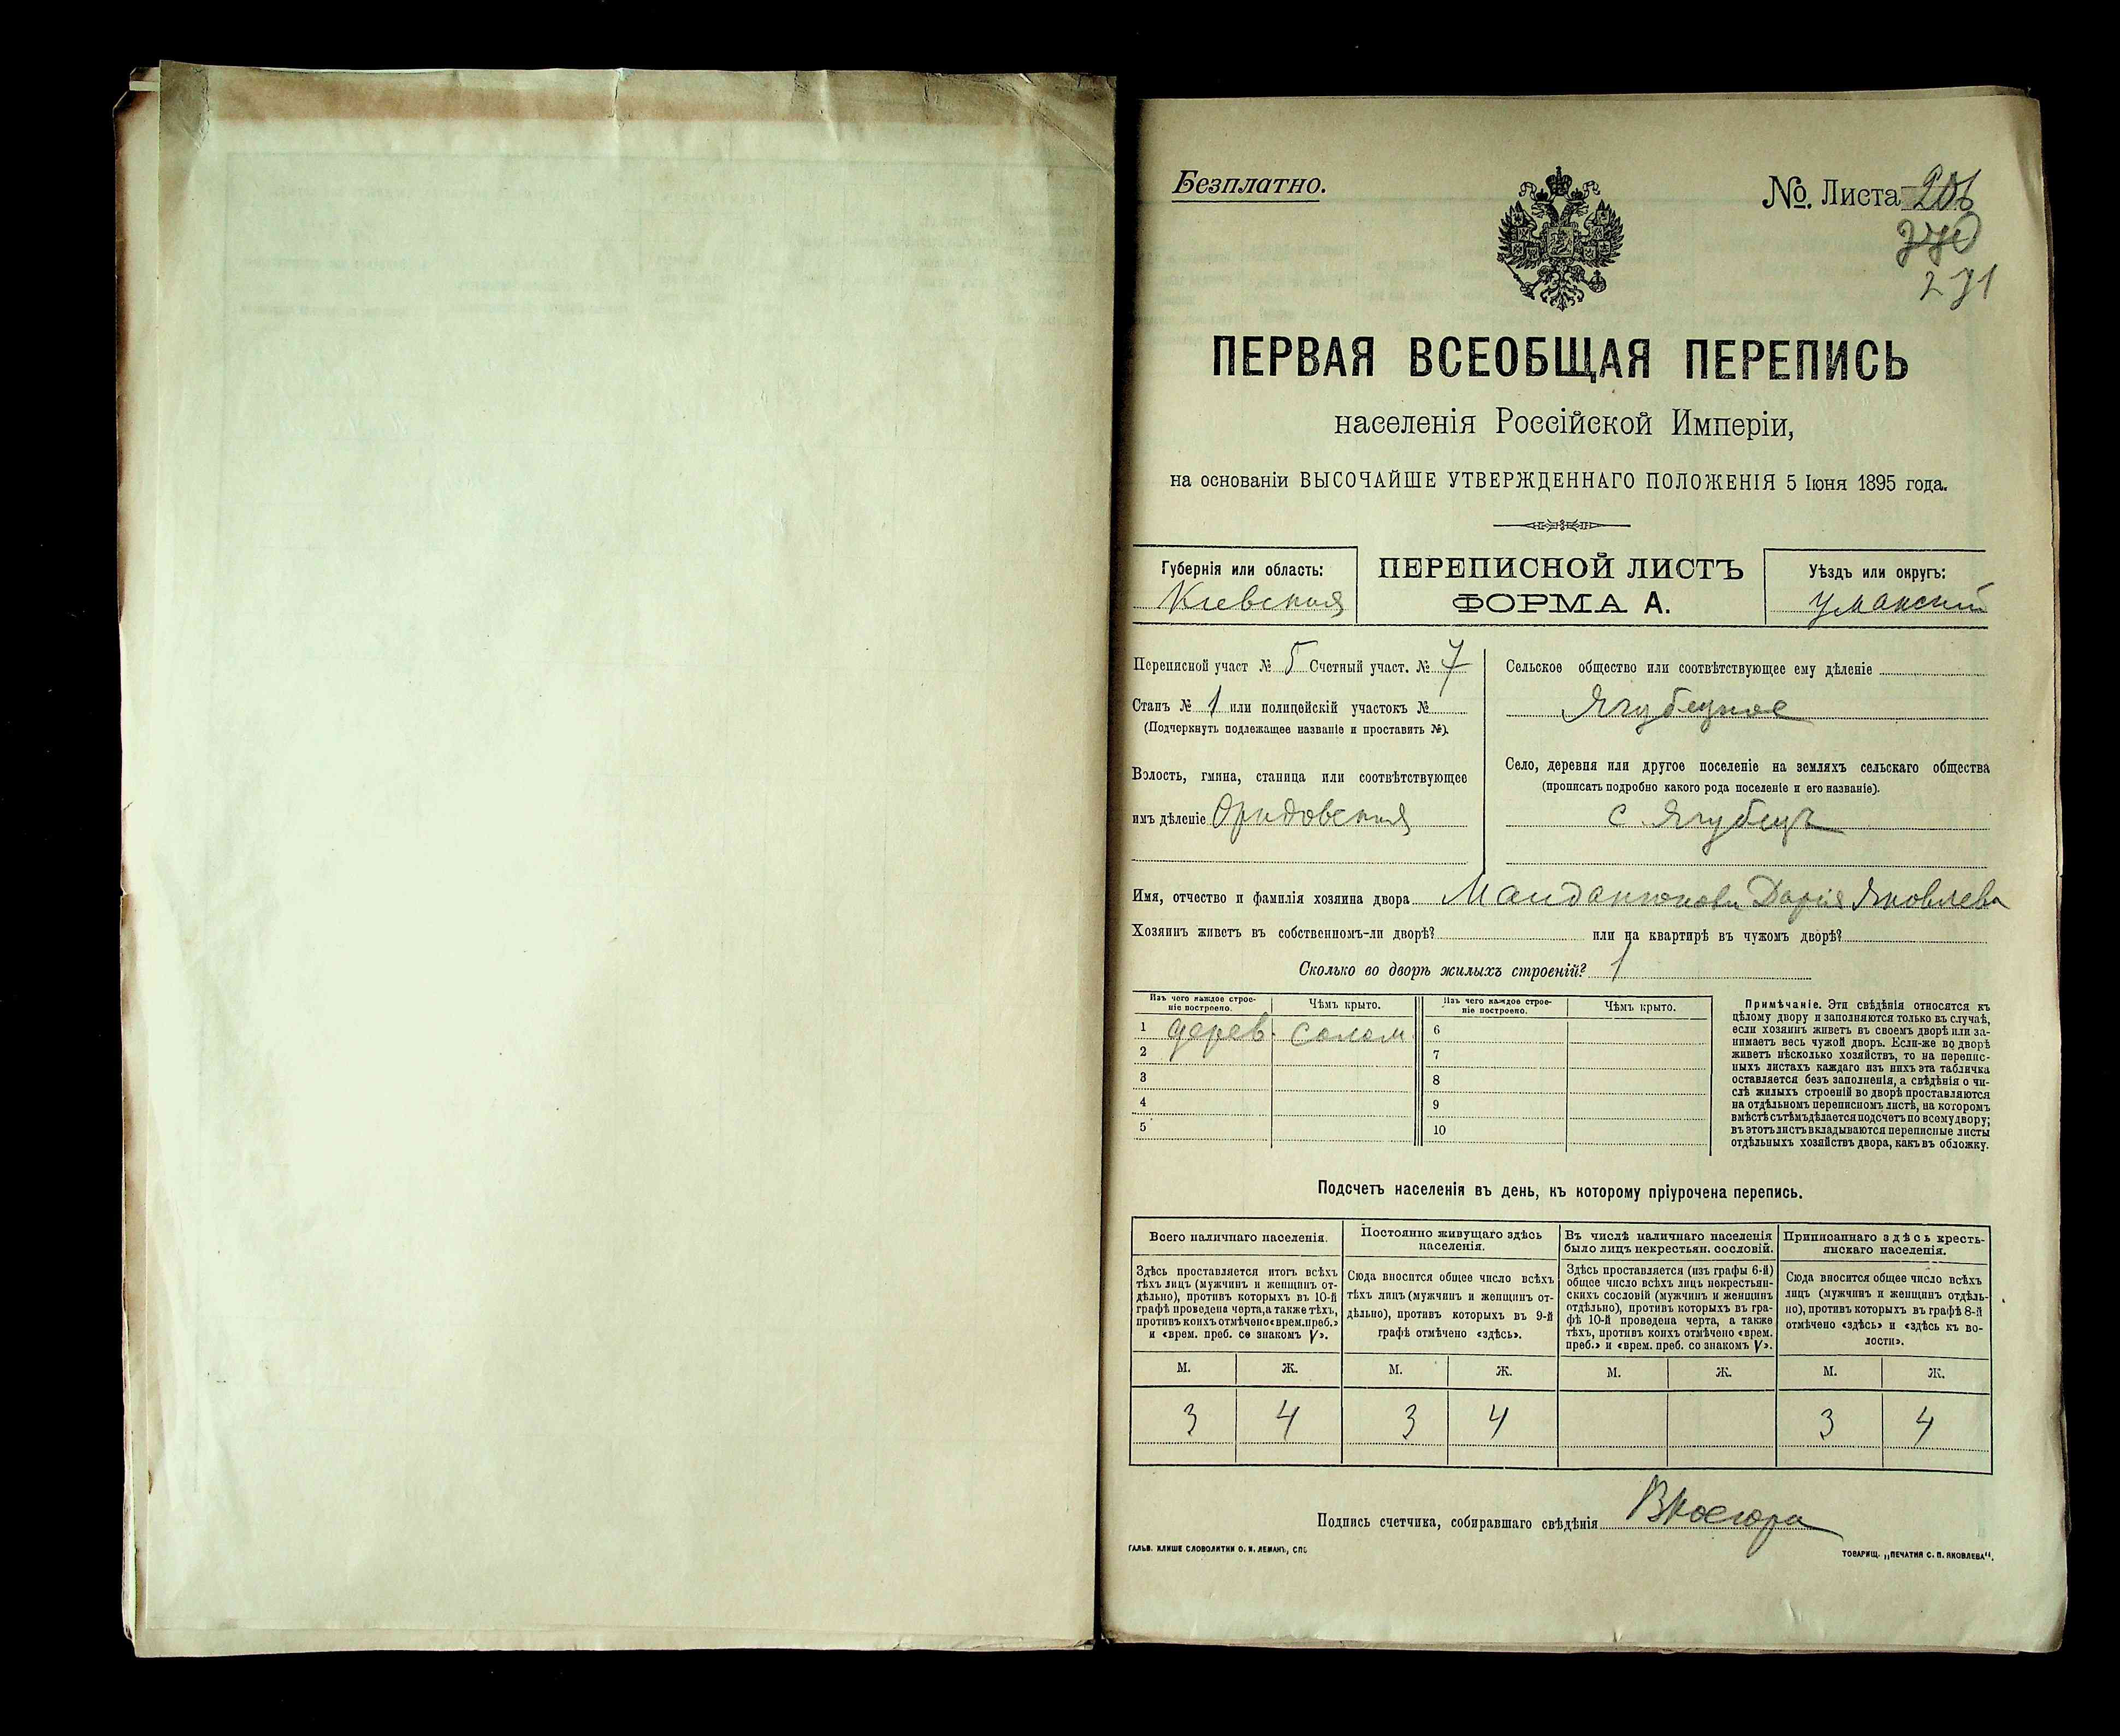 Безплатно.
№. Листа 206
270
271
ПЕРВАЯ ВСЕОБЩАЯ ПЕРЕПИСЬ
населенія Россійской Имперіи,
на основаніи ВЫСОЧАЙШЕ УТВЕРЖДЕННАГО ПОЛОЖЕНІЯ 5 Іюня 1895 года.
Губернія или область:
Кіевская
ПЕРЕПИСНОЙ ЛИСТЪ
ФОРМА А.
Уѣздъ или округъ:
Уманскій
Переписной участ № 5 Счетный участ. № 7
Станъ № 1 или полицейскій участокъ №
(Подчеркнуть подлежащее названіе и проставить №).
Волость, гмина, станица или соотвѣтствующее
имъ дѣленіе Орадовская
Сельское общество или соотвѣтствующее ему дѣленіе
Ягубецкое
Село, деревня или другое поселеніе на земляхъ сельскаго общества
(прописать подробно какого рода поселеніе и его названіе).
с. Ягубецъ
Имя, отчество и фамилія хозяина двора Майданюкова Дарія Яковлева
Хозяинъ живетъ въ собственномъ-ли дворѣ? или на квартирѣ въ чужомъ дворѣ?
Сколько во дворѣ жилыхъ строеній? 1
Изъ чего каждое строе-
ніе построено.
Чѣмъ крыто.
Изъ чего каждое строе-
ніе построено.
Чѣмъ крыто.
1 дерев. солом. 6
2 7
3 8
4 9
5 10
Примѣчаніе. Эти свѣдѣнія относятся къ
цѣлому двору и заполняются только въ случаѣ,
если хозяинъ живетъ въ своемъ дворѣ или за-
нимаетъ весь чужой дворъ. Если-же во дворѣ
живетъ нѣсколько хозяйствъ, то на перепис-
ныхъ листахъ каждаго изъ нихъ эта табличка
оставляется безъ заполненія, а свѣдѣнія о чи-
слѣ жилыхъ строеній во дворѣ проставляются
на отдѣльномъ переписномъ листѣ, на которомъ
вмѣстѣ съ тѣмъ дѣлается подсчетъ по всему двору;
въ этотъ листъ вкладываются переписные листы
отдѣльныхъ хозяйствъ двора, какъ въ обложку.
Подсчетъ населенія въ день, къ которому пріурочена перепись.
Всего наличнаго населенія.
Здѣсь проставляется итогъ всѣхъ
тѣхъ лицъ (мужчинъ и женщинъ от-
дѣльно), противъ которыхъ въ 10-й
графѣ проведена черта, а также тѣхъ,
противъ коихъ отмѣчено «врем. преб.»
и «врем. преб. со знакомъ V».
Постоянно живущаго здѣсь
населенія.
Сюда вносится общее число всѣхъ
тѣхъ лицъ (мужчинъ и женщинъ от-
дѣльно), противъ которыхъ въ 9-й
графѣ отмѣчено «здѣсь».
Въ числѣ наличнаго населенія
было лицъ некрестьян. сословій.
Здѣсь проставляется (изъ графы 6-й)
общее число всѣхъ лицъ некрестьян-
скихъ сословій (мужчинъ и женщинъ
отдѣльно), противъ которыхъ въ гра-
фѣ 10-й проведена черта, а также
тѣхъ, противъ коихъ отмѣчено «врем.
преб.» и «врем. преб. со знакомъ V».
Приписаннаго здѣсь кресть-
янскаго населенія.
Сюда вносится общее число всѣхъ
лицъ (мужчинъ и женщинъ отдѣль-
но), противъ которыхъ въ графѣ 8-й
отмѣчено «здѣсь» и «здѣсь къ во-
лости».
М. Ж. М. Ж. М. Ж. М. Ж.
3 4 3 4 3 4
Подпись счетчика, собиравшаго свѣдѣнія
ГАЛЬВ. КЛИШЕ СЛОВОЛИТНИ О. И. ЛЕМАНЪ, СПБ
ТОВАРИЩ. „ПЕЧАТНЯ С. П. ЯКОВЛЕВА“.